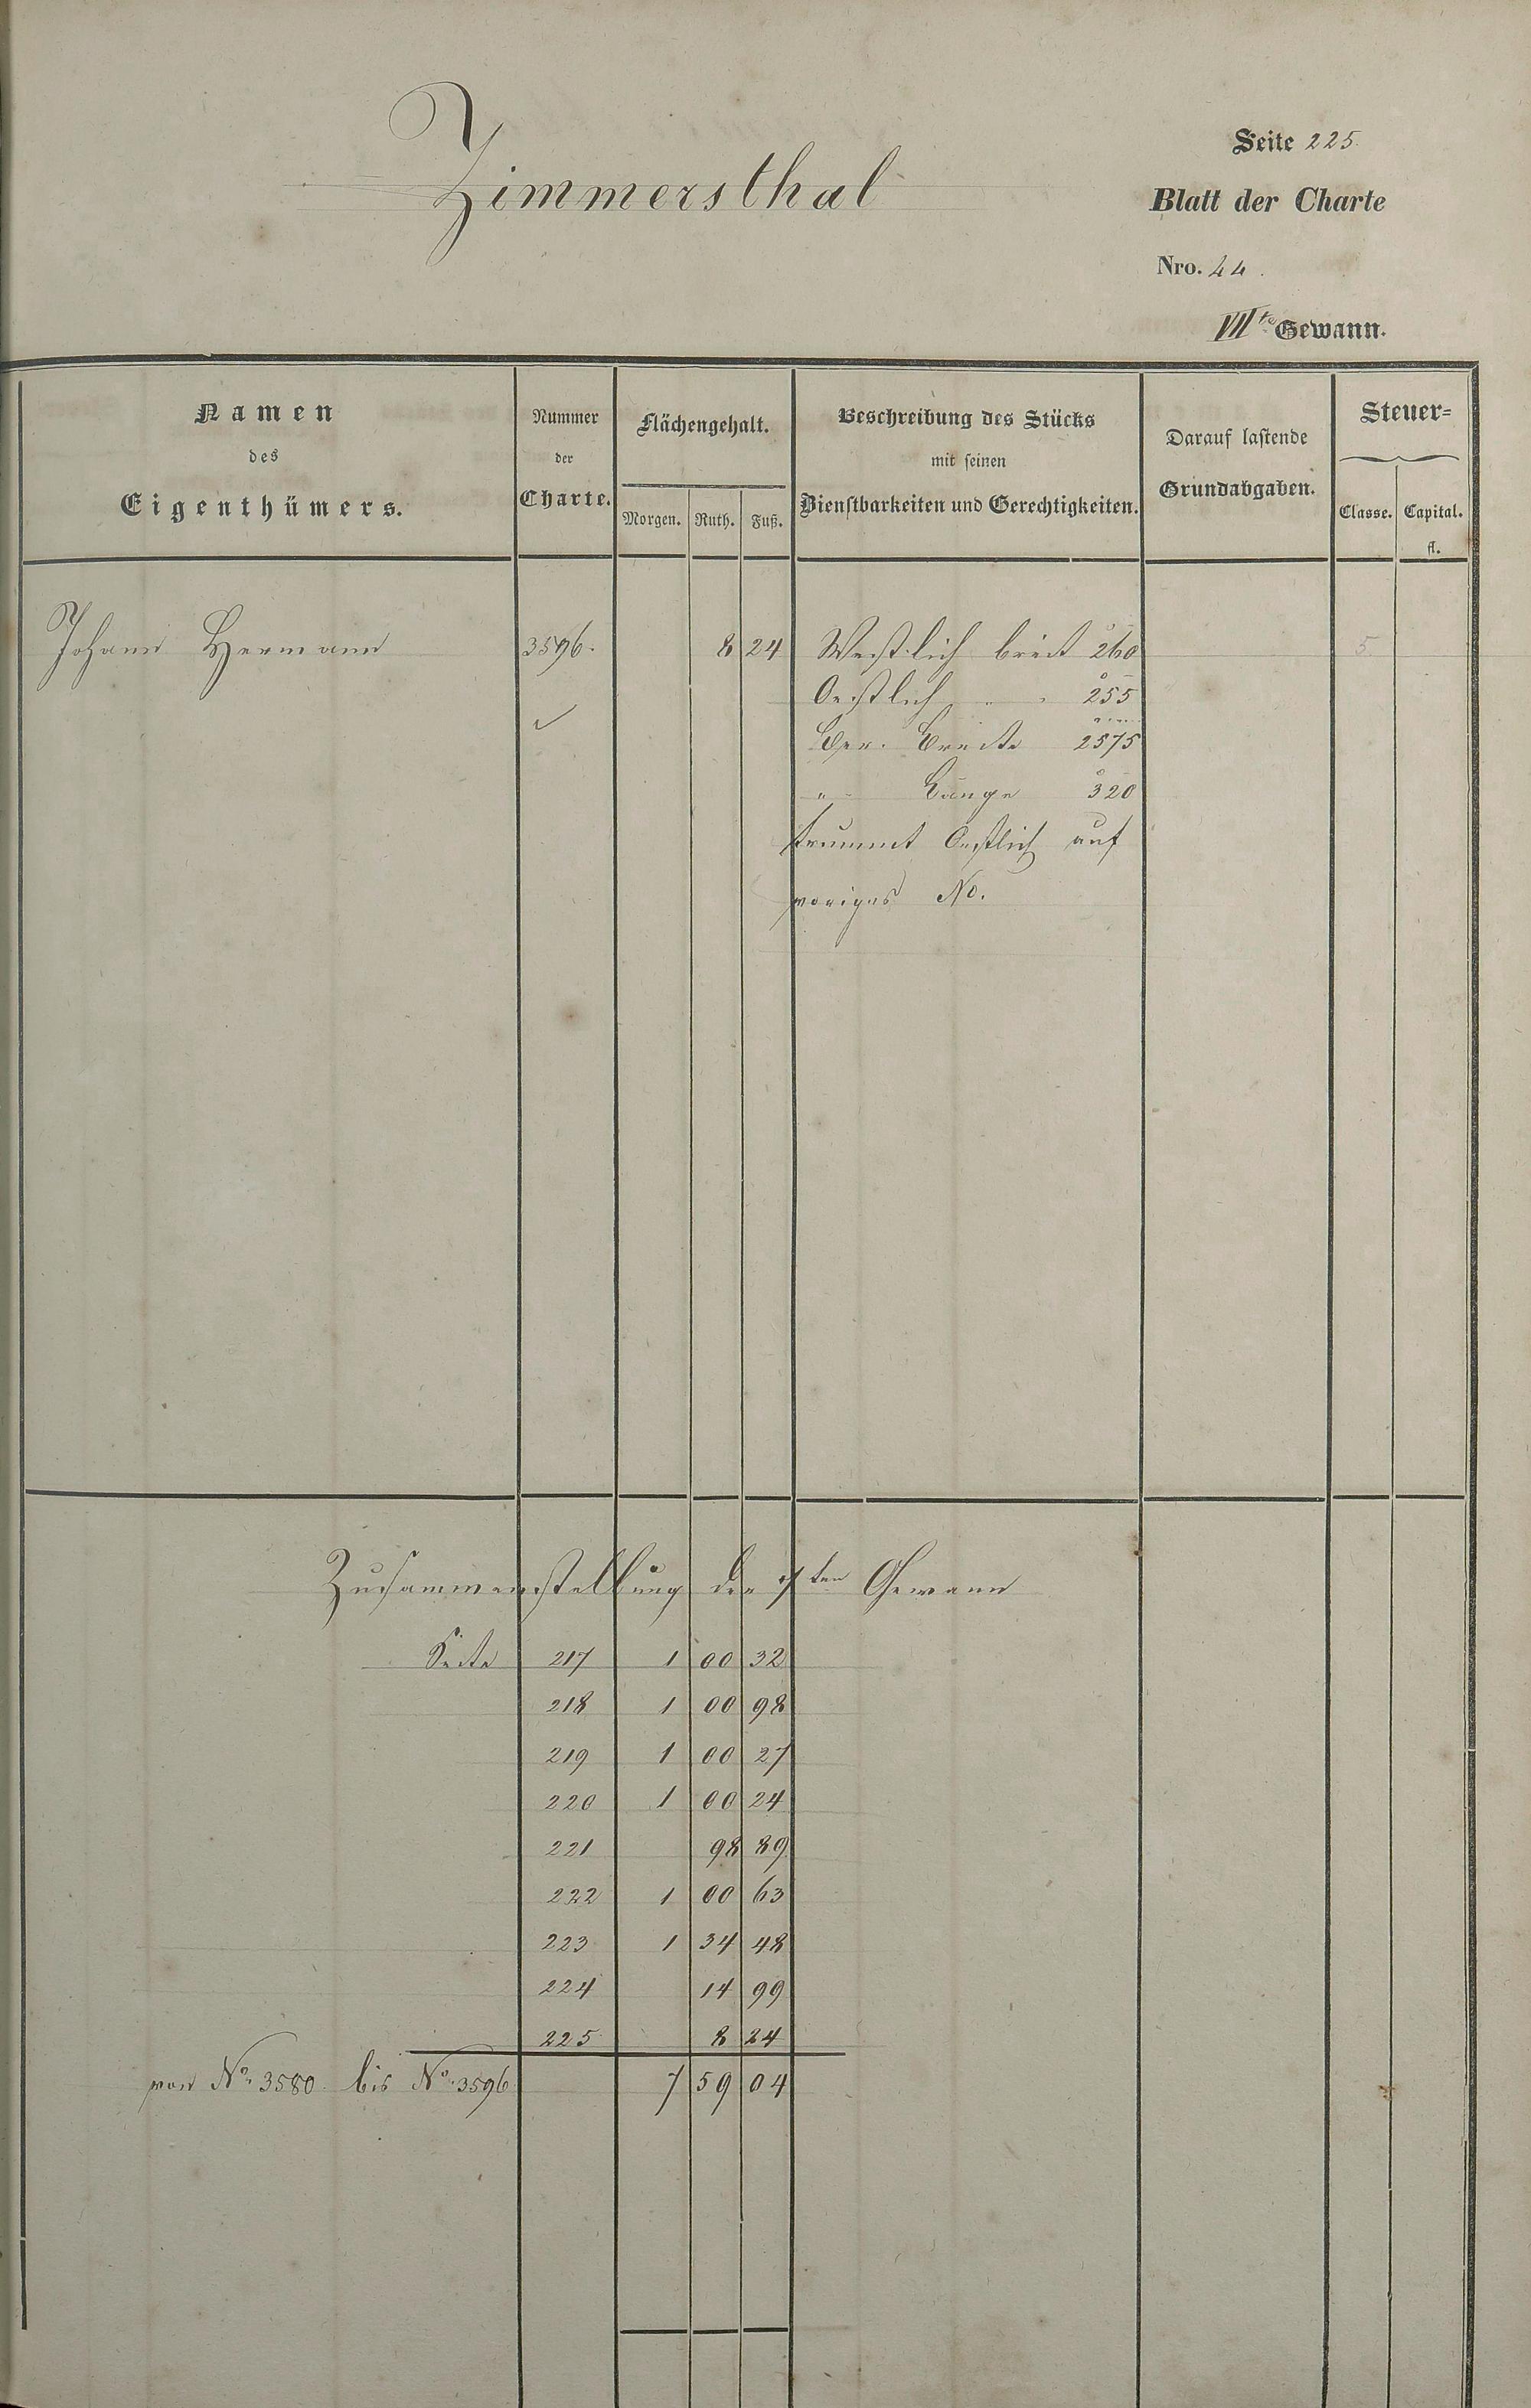 Zimmersthal
Seite 225.
Blatt der Charte
Nro. 44.
VIIte Gewann.
Namen des Eigenthümers.
Nummer der Charte.
Flächengehalt.
Morgen. Ruth. Fuß.
Beschreibung des Stücks mit seinen Dienstbarkeiten und Gerechtigkeiten.
Darauf lastende Grundabgaben.
Steuer=
Classe. Capital. fl.
Johann Hermann 3596. 8 24 Westlich breit 260 5.
Oestlich " " 255
Ger. Breite 2575
" Länge 320
trummt Oestlich auf
voriges No.
Zusammenstellung der 7ten Gewann
Seite 217 1 00 32
218 1 00 98
219 1 00 27
220 1 00 24
221 98 89
222 1 00 63
223 1 34 48
224 14 99
225 8 24
von No. 3580. bis No. 3596 7 59 04